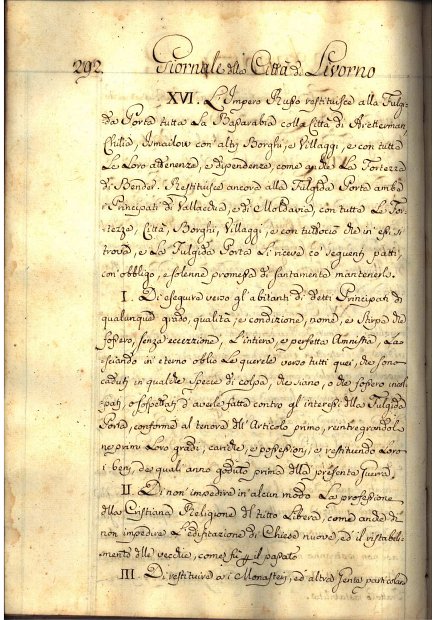 292. Giornale della Città di Livorno
XVI. L'Impero Russo restituisce alla Fulgi-
da Porta tutta La Besarabia colla Città di Arckerman
Chilia, Ismailow con altri Borghi, e Villaggi, e con tutte
Le Loro attenenze, e dipendenze, come anche La Fortezza
di Bender. Restituisce ancora alla Fulgida Porta ambi
i Principati di Vallacchia, e di Moldavia, con tutte Le For-
tezze, Città, Borghi, Villaggi, e con tuttociò che in essi si
trova, e La Fulgida Porta Li riceve co' seguenti patti,
con obbligo, e solenne promessa di santamente mantenerli.
I. Di eseguire verso gl'abitanti di detti Principati di
qualunque grado, qualità, e condizione, nome, e stirpe che
fossero, senza eccezzione, L'intiera, e perfetta Amnistia, La-
sciando in eterno oblio Le querele verso tutti quei, che sono
caduti in qualche specie di colpa, che siano, o che fossero incol-
pati, o sospettati d'averle fatte contro gl'interessi della Fulgida
Porta, conforme al tenore dell'Articolo primo, reintegrandoli
ne primi Loro gradi, cariche, e possessioni, e restituendo Loro
i beni, de quali anno goduto prima della presente Guerra.
II. Di non impedire in alcun modo La professione
della Cristiana Religione del tutto Libera, come anche di
non impedire L'edificazione di Chiese nuove, ed il ristabili-
mento delle vecchie, come fu il passato
III. Di restituire a i Monasteri, ed altra Gente particolare